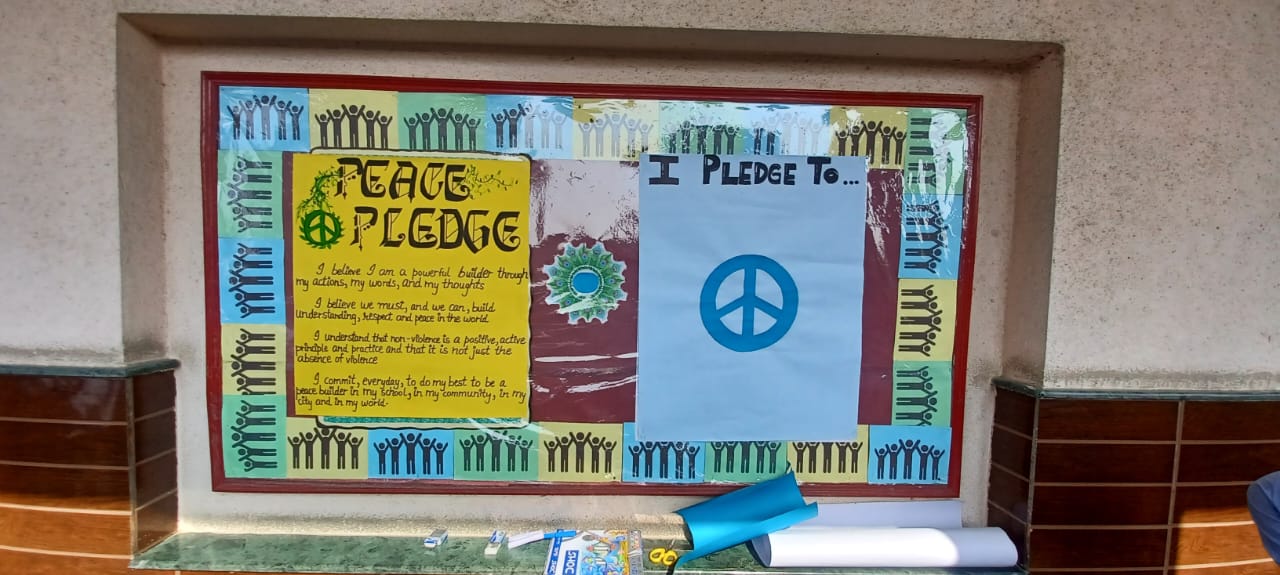 PEACE
PLEDGE
I believe I am a powerful builder through
my actions, my words, and my thoughts
I believe we must, and we can, build
understanding, respect and peace in the world
I understand that non-violence is a positive, active
principle and practice and that it is not just the
absence of violence
I commit, everyday, to do my best to be a
peace builder in my school, in my community, in my
city and in my world.
I PLEDGE TO...